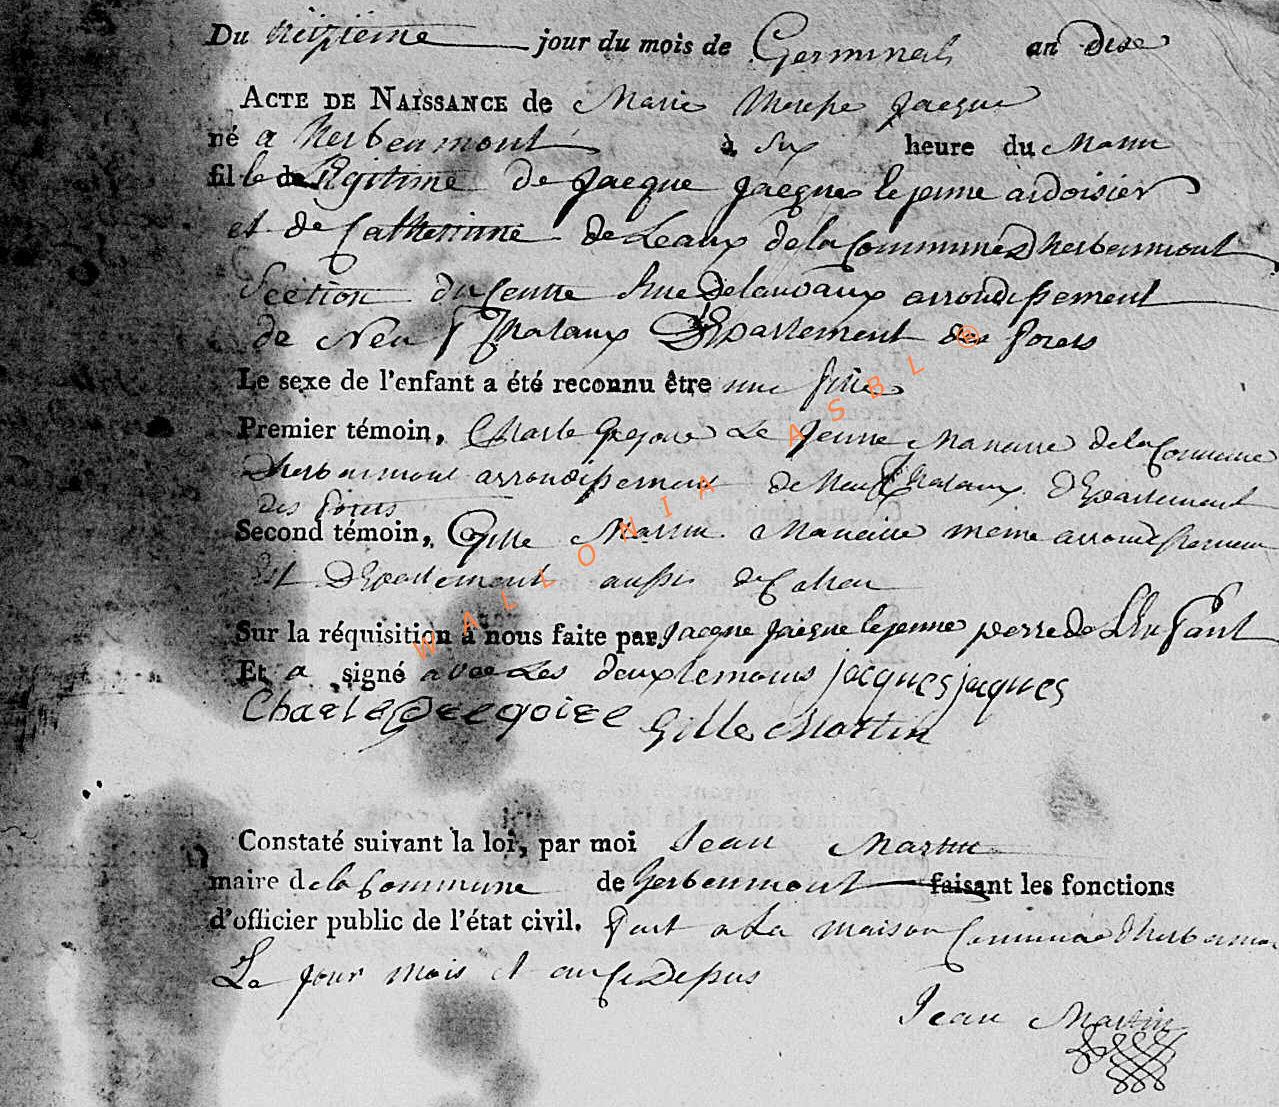 Du jour du mois de Germinal an dixe
ACTE DE NAISSANCE de Marie Therese Jacque
né a herbeumont à Six heure du Matin
fille de Légitime de Jacque Jacques le jeune ardoisier
et de Catherinne de Leaux de la Commune Dherbeumont
Section du Centre Rue Delauvaux arrondissement
de Neuf Chataux Département des forets
Le sexe de l'enfant a été reconnu être une fille
Premier témoin, Charle Gregoire Le Jeune Manœuvre de la Commune
Dherbeumont arrondissement de Neuf Chataux Département
des forets
Second témoin, Gille Martin même arrondissement
Est Département aussi
Sur la réquisition à nous faite par Jacque Jacque le jeune perre de LEnfant
Et a signé avec Les deux temoins jacques jacques
Charle Gregoire Gille Martin
Constaté suivant la loi, par moi Jean Martin
maire de la Commune de herbeumont faisant les fonctions
d'officier public de l'état civil. Fait a La maison Commune Dherbeumont
Le Jour Mois et an
Jean Martin
WALLONIA ASBL ®